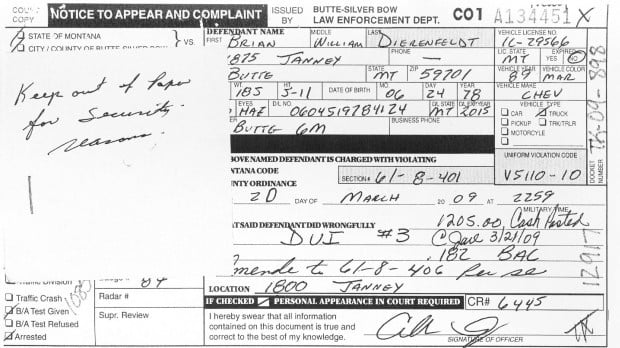 COURT COPY NOTICE TO APPEAR AND COMPLAINT ISSUED BY BUTTE-SILVER BOW LAW ENFORCEMENT DEPT. C01 A134451 X
STATE OF MONTANA VS. DEFENDANT NAME FIRST MIDDLE LAST VEHICLE LICENSE NO.
CITY / COUNTY OF BUTTE SILVER BOW BRIAN William DIERENFELDT 1C-29566
1875 JANNEY PHONE LIC. STATE MT EXPIRES 10
BUTTE STATE MT ZIP 59701 VEHICLE YEAR 89 VEHICLE COLOR MAR
WT. 185 HT. 5-11 DATE OF BIRTH MO. 06 DAY 24 YEAR 78 VEHICLE MAKE CHEV
EYES HAZ D/L NO. 0604519784124 D/L STATE MT D/L EXP. YEAR 2015 VEHICLE TYPE
CAR TRUCK
BUTTE GM BUSINESS PHONE PICKUP TRKTRLR
MOTORCYLE
Keep out of Paper
for Security
reasons.
ABOVE NAMED DEFENDANT IS CHARGED WITH VIOLATING UNIFORM VIOLATION CODE
MONTANA CODE SECTION# 61-8-401 V5110-10
COUNTY ORDINANCE
DOCKET NUMBER TK-09-898
20 DAY OF MARCH 20 09 AT 2259
MILITARY TIME
THAT SAID DEFENDANT DID WRONGFULLY 1205.00, Cash Posted
DUI #3 @ Jail 3/21/09
.182 BAC
12917
Amende to 61-8-406 Per se
Traffic Division 84 LOCATION 1800 JANNEY
Traffic Crash Radar # IF CHECKED PERSONAL APPEARANCE IN COURT REQUIRED CR# 6445
B/A Test Given
B/A Test Refused Supr. Review I hereby swear that all information
Arrested contained on this document is true and
correct to the best of my knowledge. SIGNATURE OF OFFICER